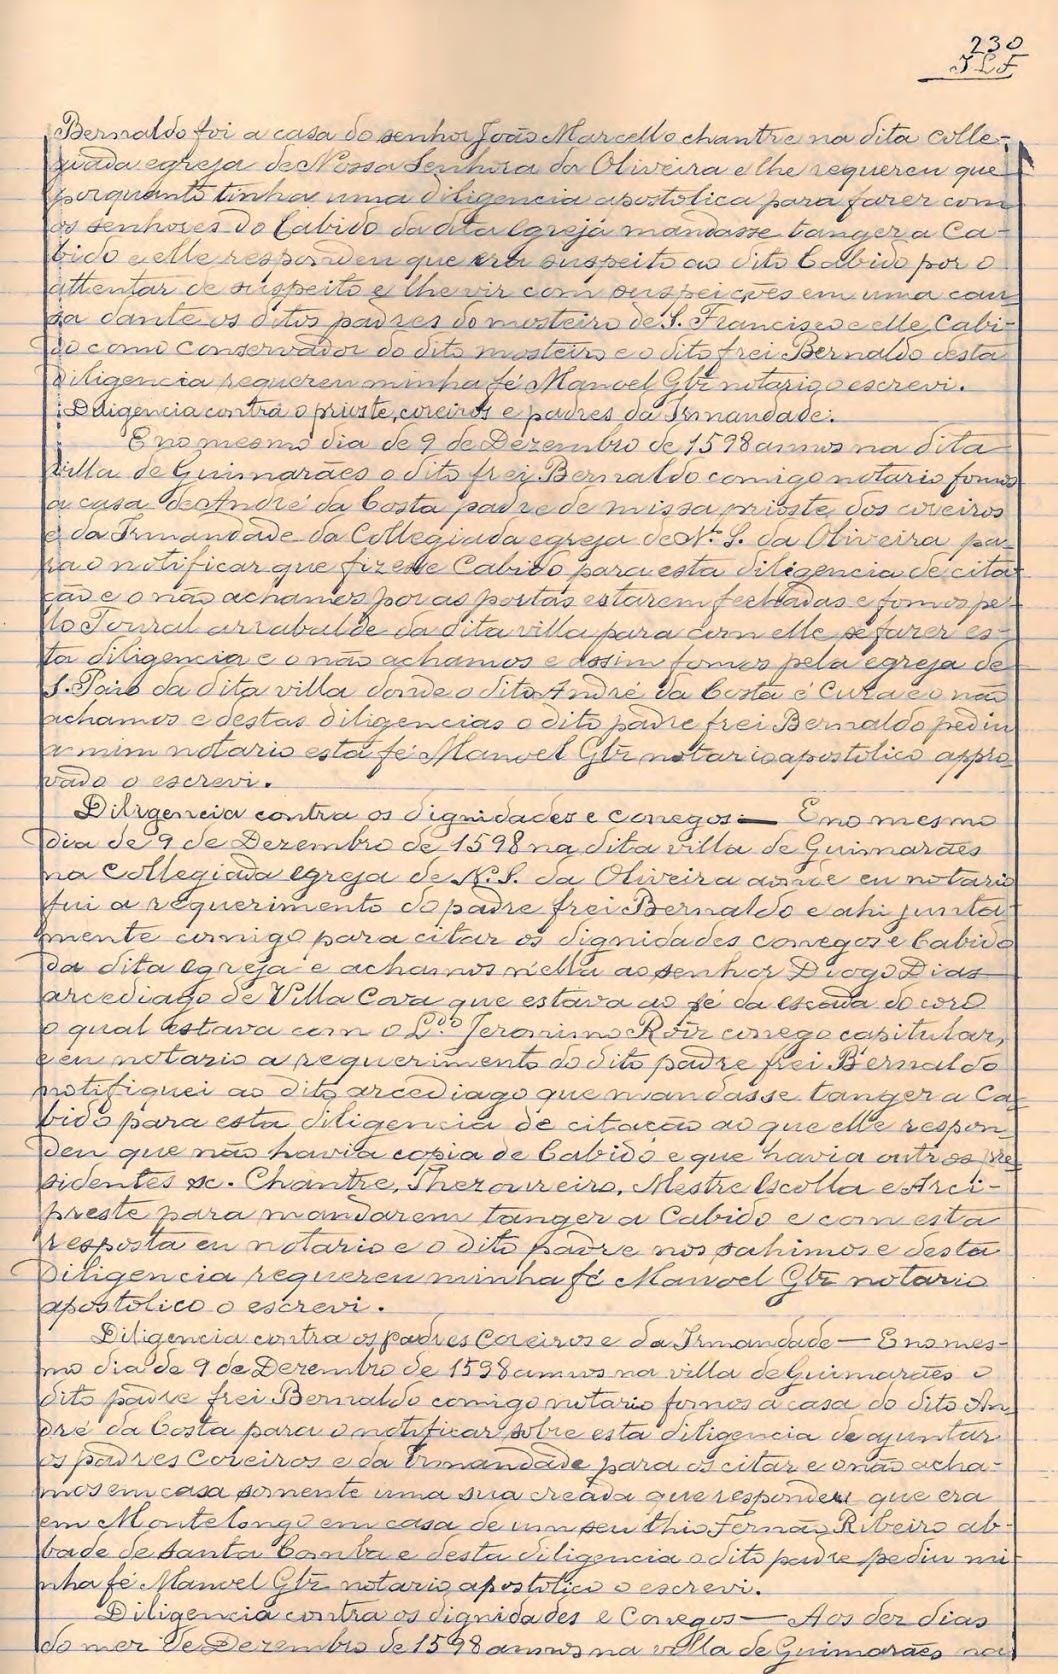 230
JLF
Bernaldo foi a casa do senhor João Marcello chantre na dita colle-
giada egreja de Nossa Senhora da Oliveira e lhe requereu que
porquanto tinha uma diligencia apostolica para fazer com
os senhores do Cabido da dita Egreja mandasse tanger a Ca-
bido e elle respondeu que era suspeito ao dito Cabido por o
attentar de suspeito e lhe vir com suspeições em uma cau-
sa dante os ditos padres do mosteiro de S. Francisco e elle, Cabi-
do como Conservador do dito mosteiro e o dito frei Bernaldo desta
diligencia requereu minha fé Manoel Glz notario o escrevi.
Diligencia contra o prioste, coreiros e padres da Irmandade.
E no mesmo dia de 9 de Dezembro de 1598 annos na dita
villa de Guimarães o dito frei Bernaldo comigo notario fomos
a casa de André da Costa padre de missa prioste dos coreiros
e da Irmandade da Collegiada egreja de N. S. da Oliveira pa-
ra o notificar que fizesse Cabido para esta diligencia de cita-
ção e o não achamos por as portas estarem fechadas e fomos pe-
lo Toural arrabalde da dita villa para com elle se fazer es-
ta diligencia e o não achamos e assim fomos pela egreja de
S. Paio da dita villa donde o dito André da Costa é Cura e o não
achamos e destas diligencias o dito padre frei Bernaldo pediu
a mim notario esta fé Manoel Glz notario apostolico appro-
vado o escrevi.
Diligencia contra os dignidades e conegos — E no mesmo
dia de 9 de Dezembro de 1598 na dita villa de Guimarães
na Collegiada egreja de N. S. da Oliveira aonde eu notario
fui a requerimento do padre frei Bernaldo e ahi junta-
mente comigo para citar os dignidades conegos e Cabido
da dita egreja e achamos n'ella ao senhor Diogo Dias
arcediago de Villa Cova que estava ao pé da escada do coro
o qual estava com o Ldo Jeronimo Roiz conego capitular,
e eu notario a requerimento do dito padre frei Bernaldo
notifiquei ao dito arcediago que mandasse tanger a Ca-
bido para esta diligencia de citação ao que elle respon-
deu que não havia copia de Cabido e que havia outros pre-
sidentes sc. Chantre, Thezoureiro, Mestre Escolla e Arci-
preste para mandarem tanger a Cabido e com esta
resposta eu notario e o dito padre nos sahimos e desta
diligencia requereu minha fé Manoel Glz notario
apostolico o escrevi.
Diligencia contra os padres Coreiros e da Irmandade — E no mes-
mo dia de 9 de Dezembro de 1598 annos na villa de Guimarães o
dito padre frei Bernaldo comigo notario fomos a casa do dito An-
dré da Costa para o notificar sobre esta diligencia de ajuntar
os padres Coreiros e da Irmandade para os citar e o não acha-
mos em casa somente uma sua creada que respondeu que era
em Montelongo em casa de um seu thio Fernão Ribeiro ab-
bade de Santa Comba e desta diligencia o dito padre pediu mi-
nha fé Manoel Glz notario apostolico o escrevi.
Diligencia contra os dignidades e Conegos — Aos dez dias
do mez de Dezembro de 1598 annos na villa de Guimarães na